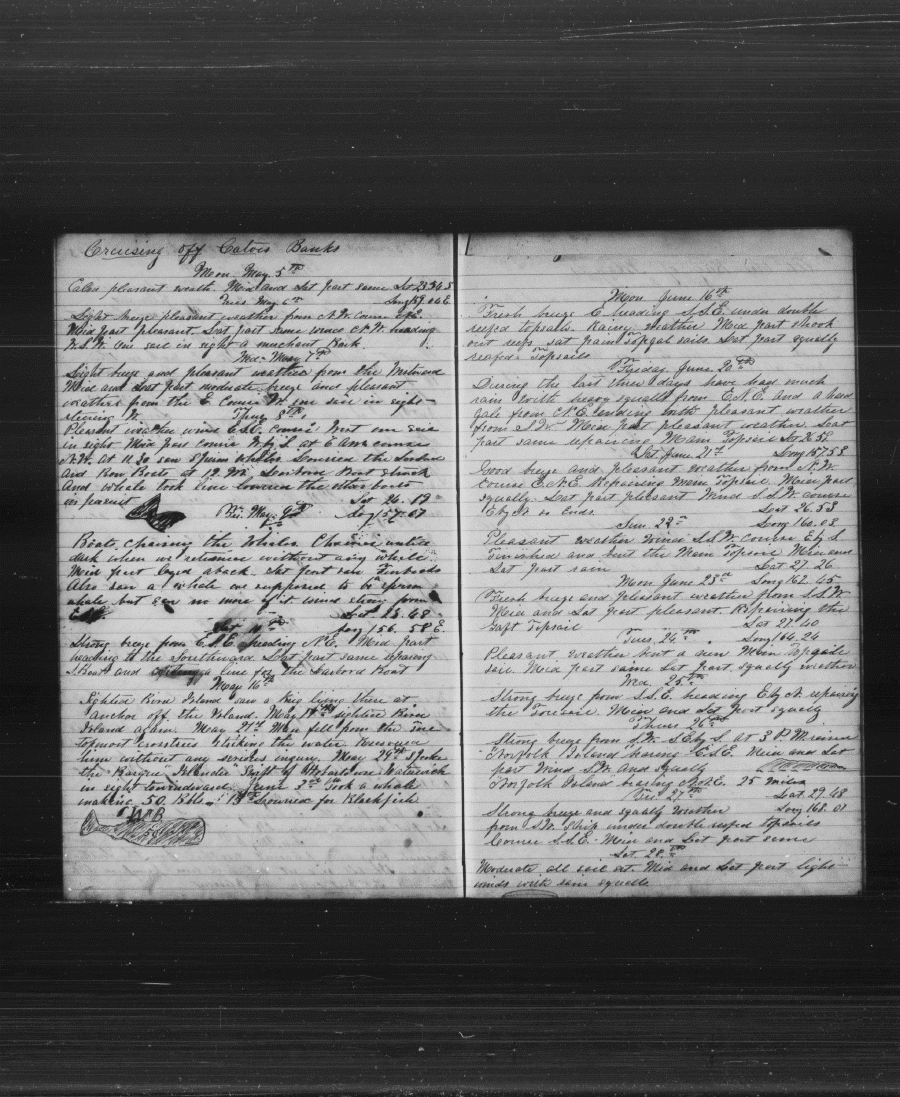 Cruising off Catois Banks
Mon May 5th
Calm pleasant weath. Mid and Lat part same Lat 23.34 S
Tues May 6th Long 159.04 E
Light breeze pleasant weather from N.W. course
Mid part pleasant. Lat part same heading
W.S.W. one sail in sight a merchant Bark.
Wed. May 7th
Light breeze and pleasant weather from the Westward
Mid and Last part moderate breeze and pleasant
weather from the E. course W. one sail in sight
steering W. Thur 8th
Pleasant weather wind E.S.E. course West one sail
in sight Mid part course W by S. at 6 A.M. course
N.W. At 11.30 saw Sperm whales Lowered the Larboard
And Bow Boats at 12 Larboard Boat struck
And whale took line lowered the other boats
in pursuit Lat 24.19
Fri. May 9th Long 157.07
Boats chasing the Whales. Chasing untill
dark when we returned without any whale
Mid part layed aback. Lat part saw Finbacks
Also saw a whale we supposed to be a sperm
whale but saw no more of it wind strong from
Lat 23.48
Sat 10th Long 156.58 E
Strong breeze from E.S.E. heading N.E. Mid part
heading to the Southward Last part same repairing
Boat and a line for the Larbord Boat
May 16th
Sighted Bird Island saw a Brig lying there at
anchor off the Island. May 19th sighted Bird
Island again. May 21st Man fell from the fore
topmost crosstrees striking the water
him without any serious injury. May 29th spoke
the Barque Islander Taft of
in sight to windward. June 3rd Took a whale
making 50 Bbls. 13th Lowered for Blackfish
W&B
58
Mon June 16th
Fresh breeze E heading S.S.E. under double
reefed topsails. Rainy weather Mid part shook
out reefs set main Topgal sails. Lat part squally
reefed Topsails
Friday June 20th
During the last three days have had much
rain with heavy squalls from E.N.E. And a hard
gale from N.E. ending with pleasant weather
from S.W. Mid part pleasant weather. Last
part same repairing Main Topsail Lat 26.52
Sat June 21st Long 157.58
Good breeze and pleasant weather from N.W.
course E.N.E. Repairing main Topsail. Mid part
squally. Last part pleasant Wind S.S.W. course
E by N. so Ends. Lat 26.53
Sun. 22nd Long 160.03
Pleasant weather wind S.S.W. course E by S.
Finished and bent the Main Topsail Mid and
Lat part rain Lat 27.26
Mon June 23rd Long 162.45
Fresh breeze and pleasant weather from S.S.W.
Mid and Lat part pleasant. Repairing the
Gaft Topsail Lat 27.40
Tues. 24th Long 164.24
Pleasant weather bent a new Main Topgall
sail. Mid part same Lat part squally weather
Wed. 25th
Strong breeze from S.S.E. heading E by N. repairing
the Foresail. Mid and Lat part squally
Thurs 26th
Strong breeze from S.W. S.E by S. at 3 P.M. raised
Norfolk Island bearing E.S.E. Mid and Lat
part Wind S.W. and squally
Norfolk Island bearing N.N.E. 25 miles
Fri. 27th Lat 29.48
Strong breeze and squally weather Long 168.01
from S.W. Ship under double reefed topsails
Course S.S.E. Mid and Lat part same
Sat. 28th
Moderate all sail set. Mid and Last part light
winds with some squalls